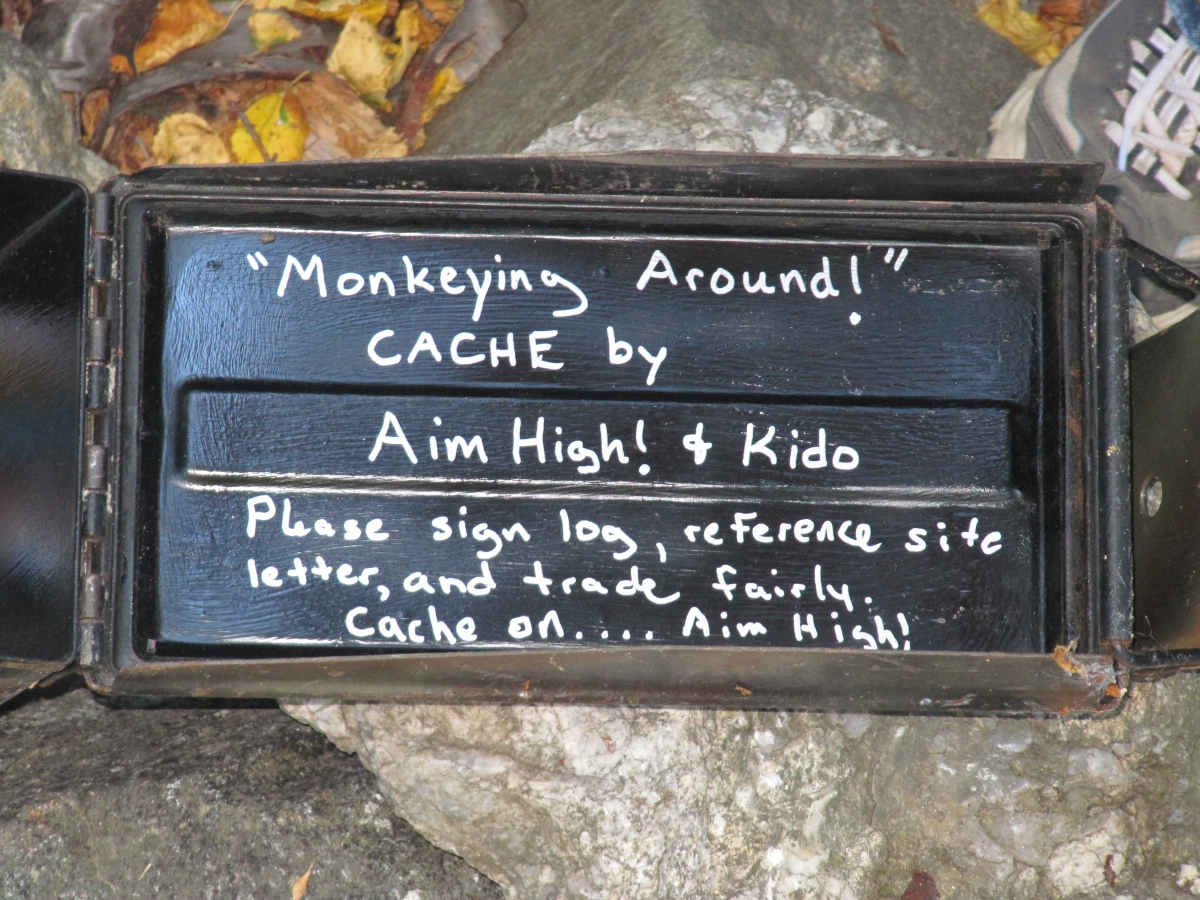 "Monkeying Around!"
CACHE by
Aim High! & Kido
Please sign log, reference site
letter, and trade fairly.
Cache on.... Aim High!